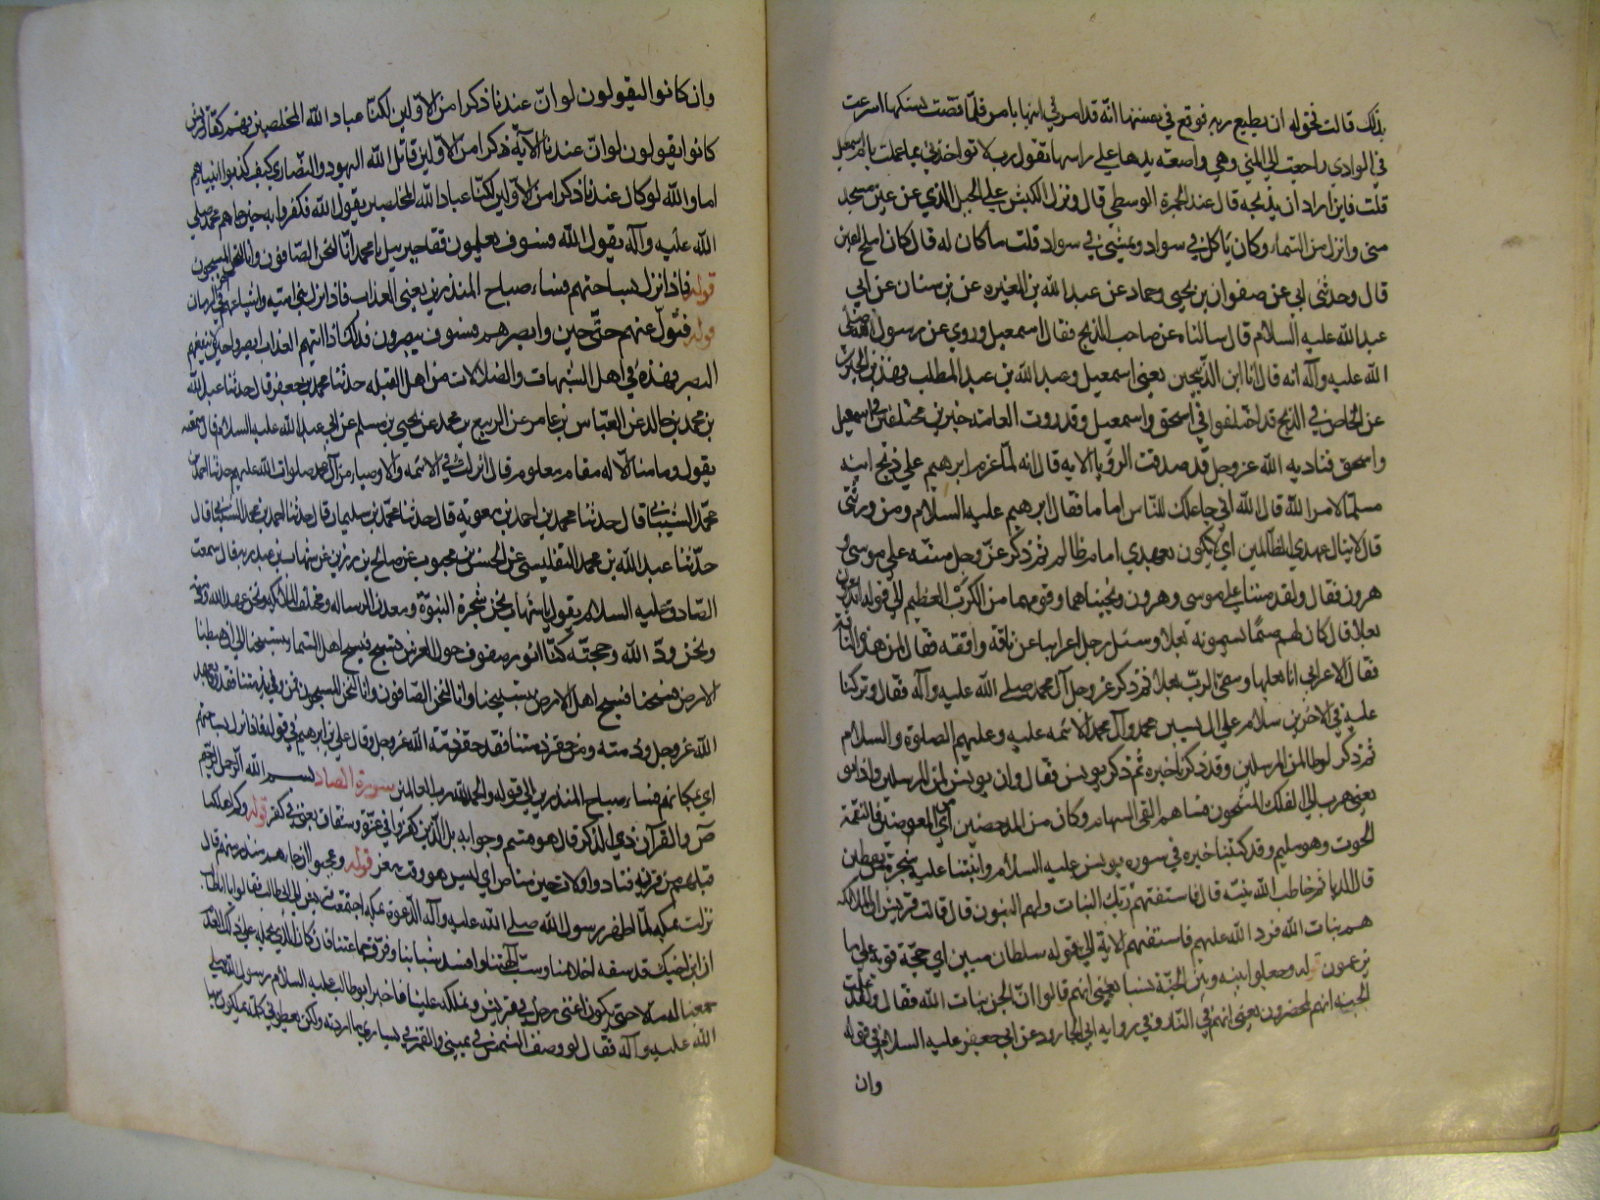 بذلك قالت فحق له ان يطيع ربه فوقع في نفسها انه قد امر في ابنها بامر فلما قضت نسكها اسرعت
في الوادي راجعت الي المني وهي واضعه يدها علي راسها تقول رب لا تواخذني بما عملت بام اسمعيل
قلت فاين اراد ان يذبحه قال عند الجمرة الوسطي قال ونزل الكبش علي الجبل الذي عن عين مسجد
مني وانزل من السماء وكان ياكل في سواد ويمشي في سواد قلت ما كان له قال كان املح اعين
قال وحدثني ابي عن صفوان بن يحيي وحماد عن عبد الله بن المغيره عن بن سنان عن ابي
عبد الله عليه السلام قال سالناه عن صاحب الذبح فقال اسمعيل وروي عن رسول الله صلي
الله عليه وآله انه قال انا ابن الذبيحين يعني اسمعيل وعبد الله بن عبد المطلب فهذين الخبرين
عن الخاص في الذبح قد اختلفوا في اسحق واسمعيل وقد روت العامه خبرين مختلفين في اسمعيل
واسحق فناديه الله عز وجل قد صدقت الرؤيا الايه قال انه لما عزم ابرهيم علي ذبح ابنه
مسلما لامر الله قال الله اني جاعلك للناس اماما فقال ابرهيم عليه السلام ومن ذريتي
قال لا ينال عهدي الظالمين اي لا يكون بعهدي امام ظالم ثم ذكر عز وجل منته علي موسي و
هرون فقال ولقد مننا علي موسي وهرون ونجيناهما وقومهما من الكرب العظيم الي قوله اتدعون
بعلا قال كان لهم صنما يسمونه بعلا وسئل رجل اعرابيا عن ناقة واقفه فقال لمن هذه الناقة
فقال الاعرابي انا بعلها وسمي الرب بعلا ثم ذكر عز وجل آل محمد صلي الله عليه وآله فقال وتركنا
عليه في الاخرين سلام علي ال يسين محمد وآل محمد الائمه عليه وعليهم الصلوة والسلام
ثم ذكر لوطا لمن المرسلين وقد ذكرنا خبره ثم ذكر يونس فقال وان يونس لمن المرسلين اذ ابق
يعني هرب الي الفلك المشحون فساهم القي السهام وكان من المدحضين اي من المغوصين فالتقمه
الحوت وهو مليم وقد كتبنا خبره في سوره يونس عليه السلام وانبتنا عليه شجرة من يقطين
قال الدبا ثم خاطب الله نبيه قال فاستفتهم لربك البنات ولهم البنون قال قالت قريش ان الملائكه
هم بنات الله فرد الله عليهم فاستفتهم الاية الي قوله سلطان مبين اي حجة قوية علي ما
يزعمون قوله وجعلوا بينه وبين الجنة نسبا يعني انهم قالوا ان الجن بنات الله فقال ولقد علمت
الجنه انهم لمحضرون يعني انهم في النار وفي روايه ابي الجارود عن ابي جعفر عليه السلام في قوله
وان
وان كانوا ليقولون لو ان عندنا ذكرا من الاولين لكنا عباد الله المخلصين فهم كفار قريش
كانوا يقولون لو ان عندنا الآية ذكرا من الاولين قاتل الله اليهود والنصاري كيف كذبوا انبياءهم
اما والله لو كان عندنا ذكرا من الاولين لكنا عباد الله المخلصين يقول الله فكفروا به حين جاءهم محمد صلي
الله عليه وآله يقول الله فسوف يعلمون فقال جبريل يا محمد انا لنحن الصافون وانا لنحن المسبحون
قوله فاذا نزل بساحتهم فساء صباح المنذرين يعني العذاب فاذا نزل ببني اميه واشياعهم في آخر الزمان
قوله فتول عنهم حتي حين وابصرهم فسوف يبصرون فذلك اذا اتيهم العذاب ابصروا حين لا ينفعهم
البصر فهذه في اهل الشبهات والضلالات من اهل القبله حدثنا محمد بن جعفر قال حدثنا عبد الله
بن محمد بن خالد عن العباس بن عامر عن الربيع بن محمد عن يحيي بن مسلم عن ابي عبد الله عليه السلام قال سمعته
يقول وما منا الا له مقام معلوم قال انزلت في الائمه والاوصياء من آل محمد صلوات الله عليهم حدثنا احمد بن
محمد الشيباني قال حدثنا محمد بن احمد بن معوية قال حدثنا محمد بن سليمان قال حدثنا احمد بن محمد الشيباني قال
حدثنا عبد الله بن محمد التفليسي عن الحسن بن محبوب عن صالح بن رزين عن شهاب بن عبد ربه قال سمعت
الصادق عليه السلام يقول يا شهاب نحن شجرة النبوة ومعدن الرساله ومختلف الملائكه ونحن عهد الله وذمته
ونحن ود الله وحجته كنا انوار صفوف حول العرش نسبح فيسبح اهل السما بتسبيحنا الي ان هبطنا
الارض فسبحنا فسبح اهل الارض بتسبيحنا وانا لنحن الصافون وانا لنحن المسبحون فمن وفي بذمتنا فقد وفي بعهد
الله عز وجل وذمته ومن خفر ذمتنا فقد خفر ذمة الله عز وجل وقال علي بن ابرهيم في قوله فاذا نزل بساحتهم
اي بمكانهم فساء صباح المنذرين الي قوله والحمد لله رب العالمين سورة الصاد بسم الله الرحمن الرحيم
ص والقرآن ذي الذكر قال هو قسم وجوابه بل الذين كفروا في عزة وشقاق يعني في كفر قوله وكم اهلكنا
قبلهم من قرن فنادوا ولات حين مناص اي ليس هو وقت مفر قوله وعجبوا ان جاءهم منذر منهم قال
نزلت بمكه لما اظهر رسول الله صلي الله عليه وآله الدعوة بمكه اجتمعت قريش الي ابي طالب فقالوا يا ابا طالب
ان ابن اخيك قد سفه احلامنا وسب آلهتنا وافسد شبابنا وفرق جماعتنا فان كان الذي يحمله علي ذلك العدم
جمعنا له مالا حتي يكون اغني رجل في قريش ونملكه علينا فاخبر ابو طالب عليه السلام رسول الله صلي
الله عليه وآله فقال لو وضعت الشمس في يميني والقمر في يساري ما اردته ولكن يعطوني كلمة يملكون بها